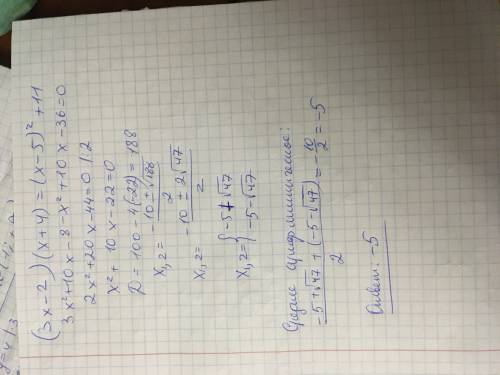 (3x-2)(x+4)=(x-5)²+11
3x²+10x-8-x²+10x-36=0
2x²+20x-44=0 |:2
x²+10x-22=0
D=100-4(-22)=188
x₁,₂= (-10±√188)/2
x₁,₂= (-10±2√47)/2
x₁,₂= { -5+√47
{ -5-√47
Среднее арифметическое:
(-5+√47+(-5-√47))/2 = -10/2 = -5
Ответ: -5